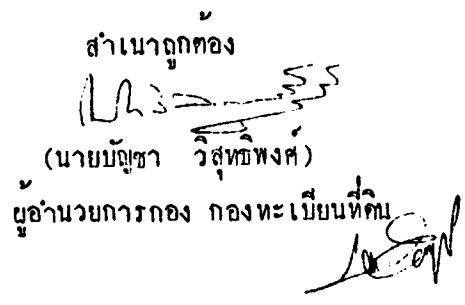 สำเนาถูกต้อง
(นายบัญชา วิสุทธิพงศ์)
ผู้อำนวยการกอง กองทะเบียนที่ดิน